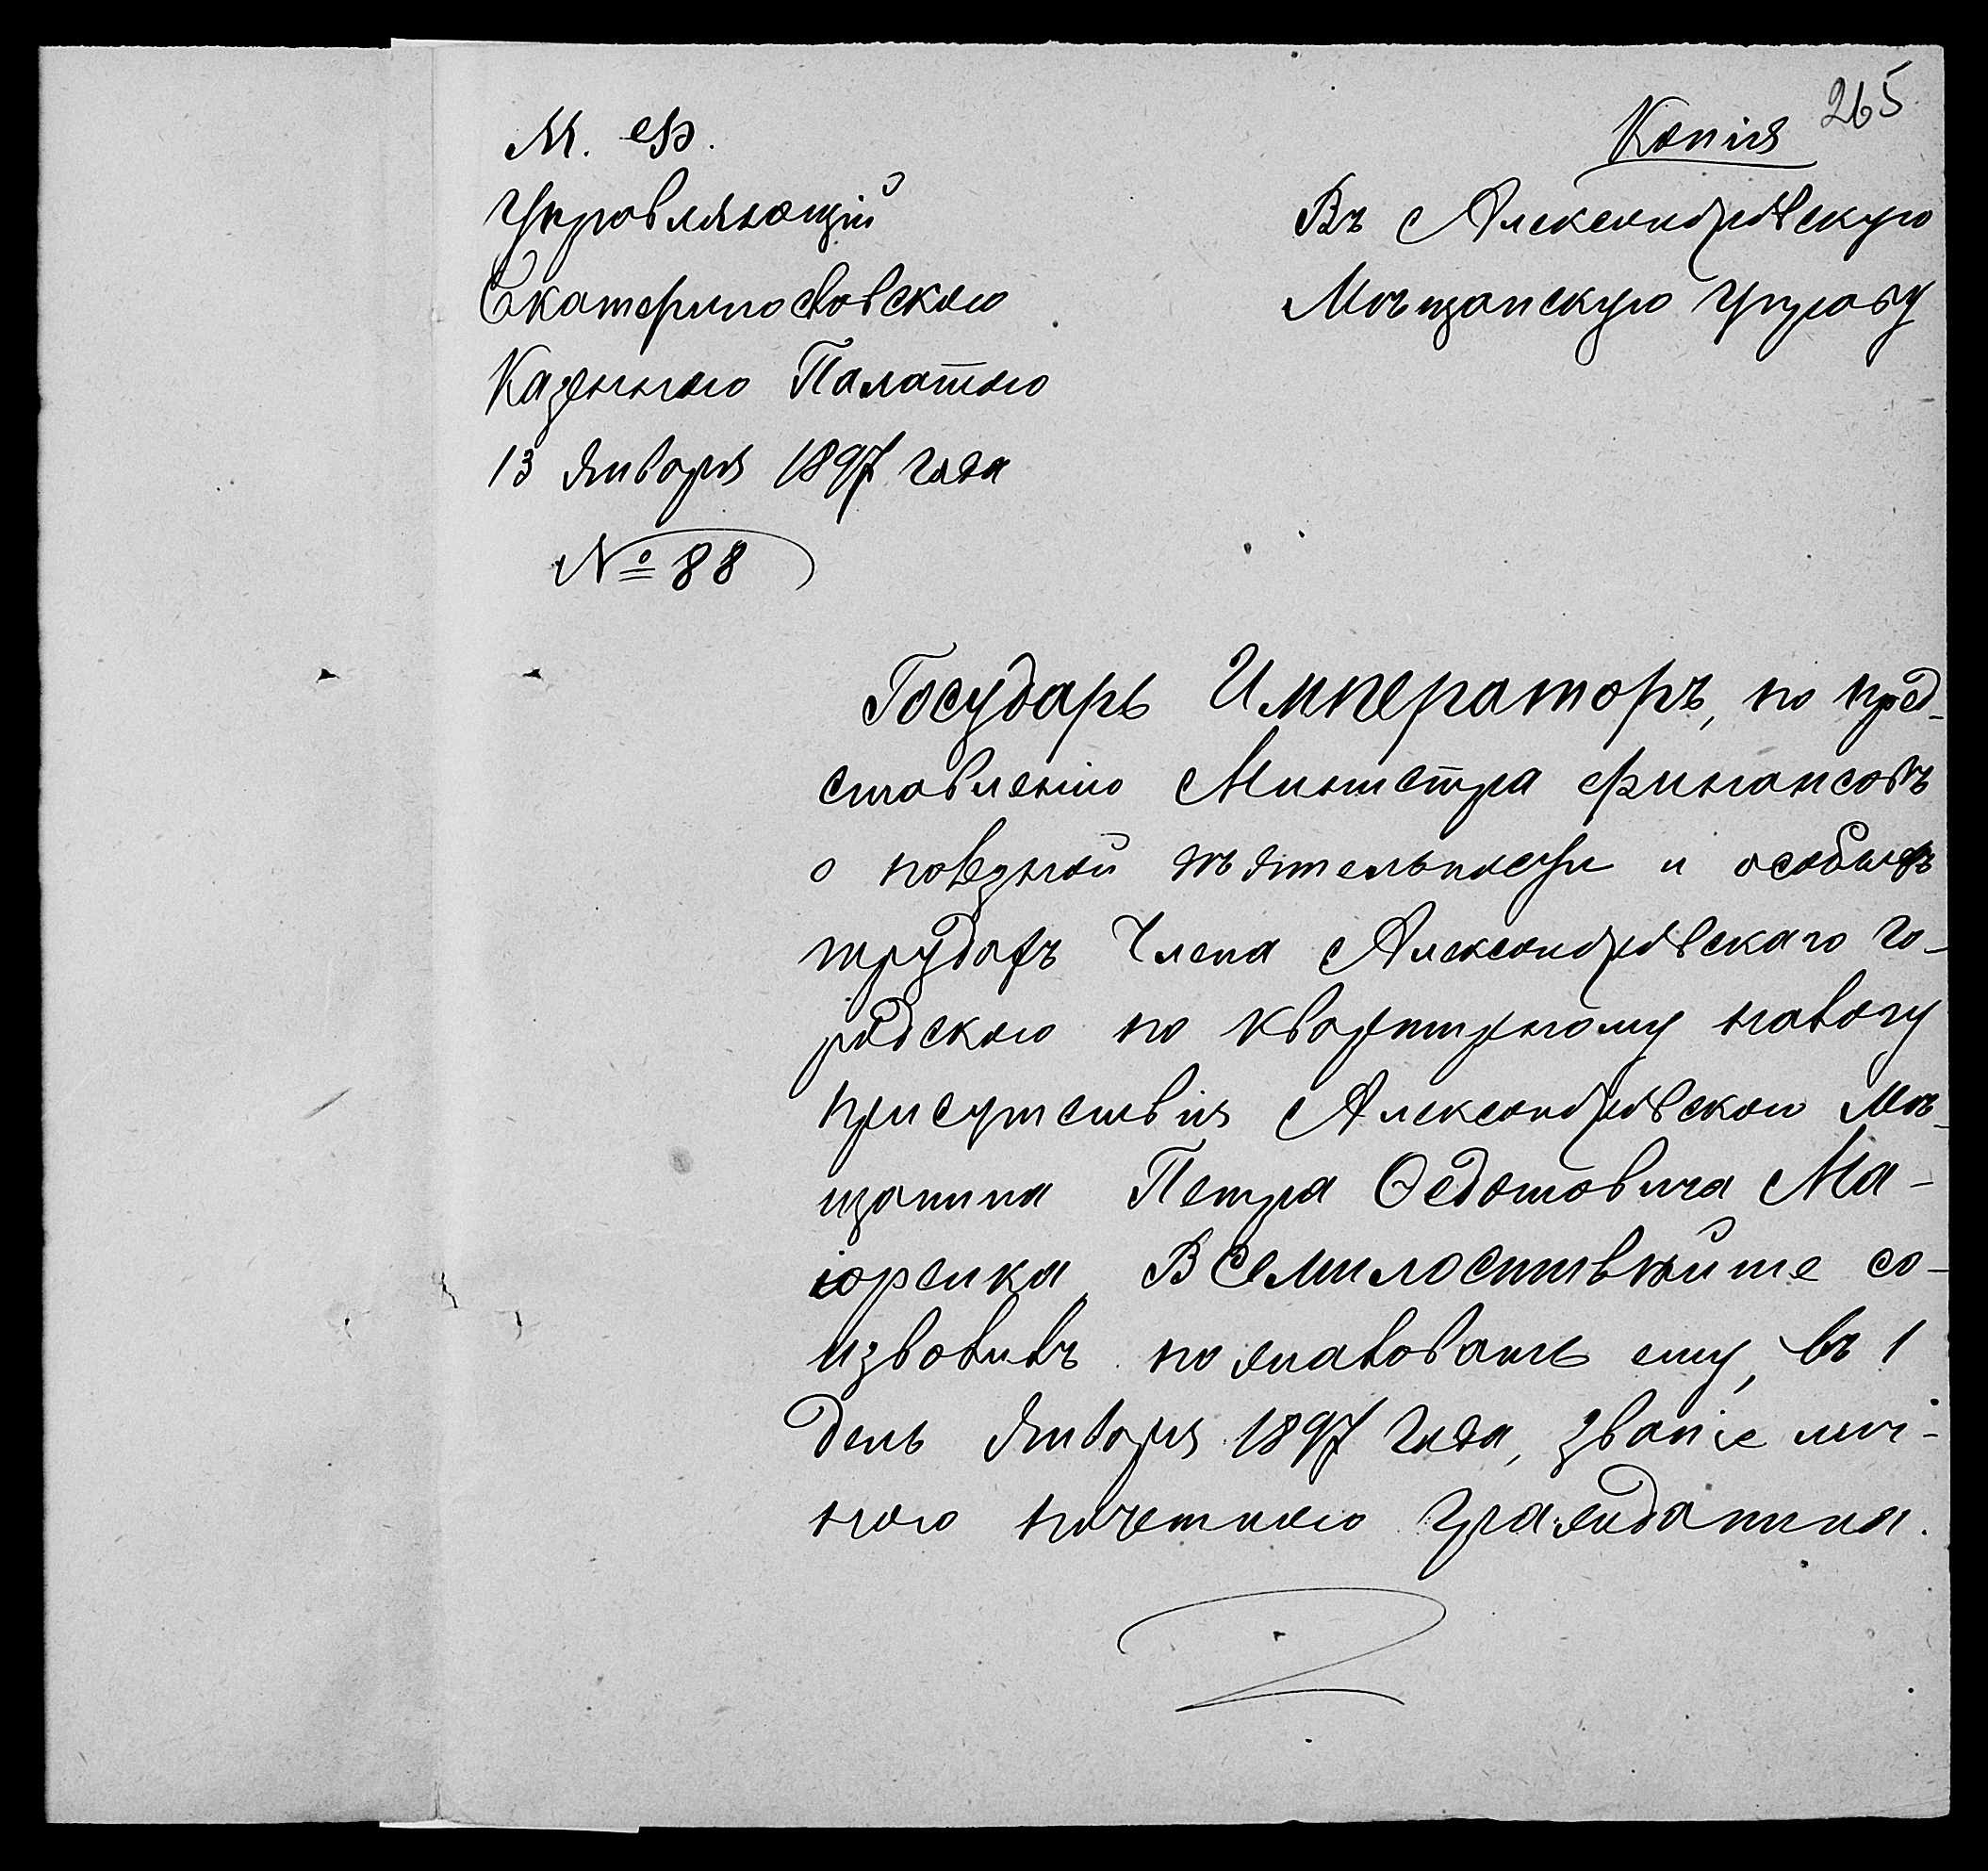 265
Копія
М. Ф.
Управляющій
Екатеринославскою
Казенною Палатою
13 Января 1897 года
№ 88
Въ Александровскую
Мѣщанскую Управу
Государь Императоръ, по пред-
ставленію Министра Финансовъ
о полезной дѣятельности и особыхъ
трудахъ Члена Александровскаго го-
родского по квартирному налогу
присутствія Александровского Мѣ-
щанина Петра Ѳедотовича Ма-
іоренка, Всемилостивѣйше со-
изволилъ пожаловать ему, въ 1
день Января 1897 года, званіе лич-
ного почетного гражданина.